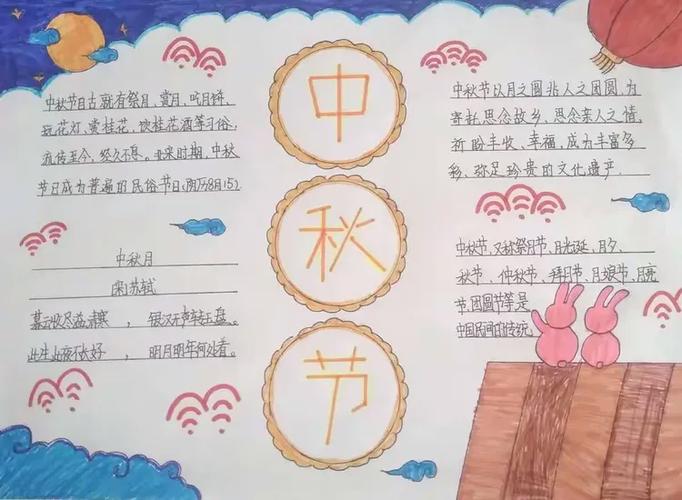 中
秋
节
中秋节自古就有祭月、赏月、吃月饼、
玩花灯、赏桂花、饮桂花酒等习俗,
流传至今,经久不息。北宋时期,中秋
节日成为普遍的民俗节日(阴历8月15)
中秋月
宋苏轼
暮云收尽溢清寒 , 银汉无声转玉盘。
此生此夜不长好 , 明月明年何处看。
中秋节以月之圆兆人之团圆,为
寄托思念故乡,思念亲人之情,
祈盼丰收、幸福,成为丰富多
彩、弥足珍贵的文化遗产.
中秋节,又称祭月节、月光诞、月夕、
秋节、仲秋节、拜月节、月娘节、月亮
节、团圆节等是
中国民间的传统